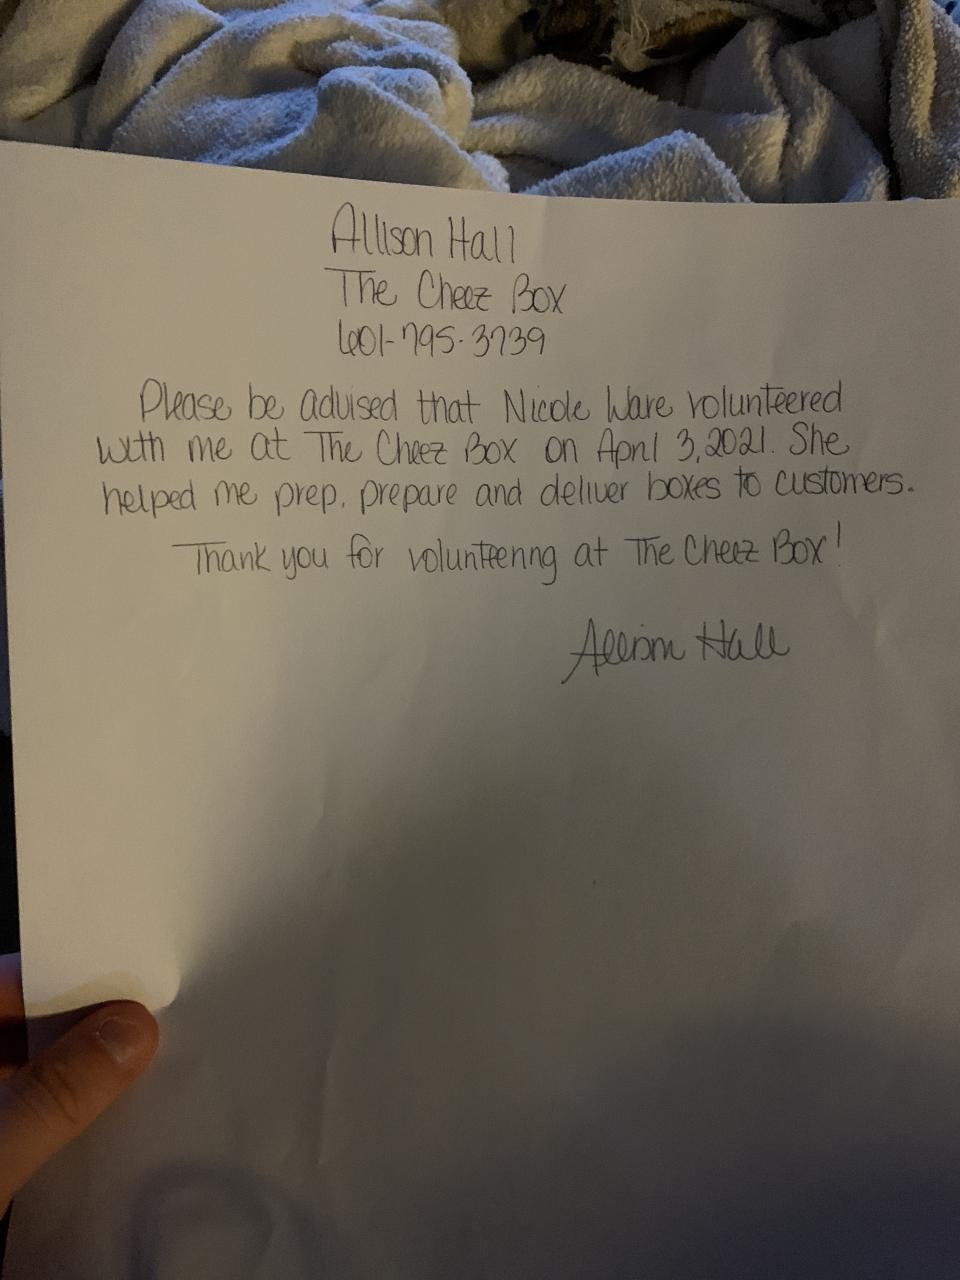 Allison Hall
The Cheez Box
601-795-3739
Please be advised that Nicole Ware volunteered
with me at The Cheez Box on April 3, 2021. She
helped me prep, prepare and deliver boxes to customers.
Thank you for volunteering at The Cheez Box!
Allison Hall